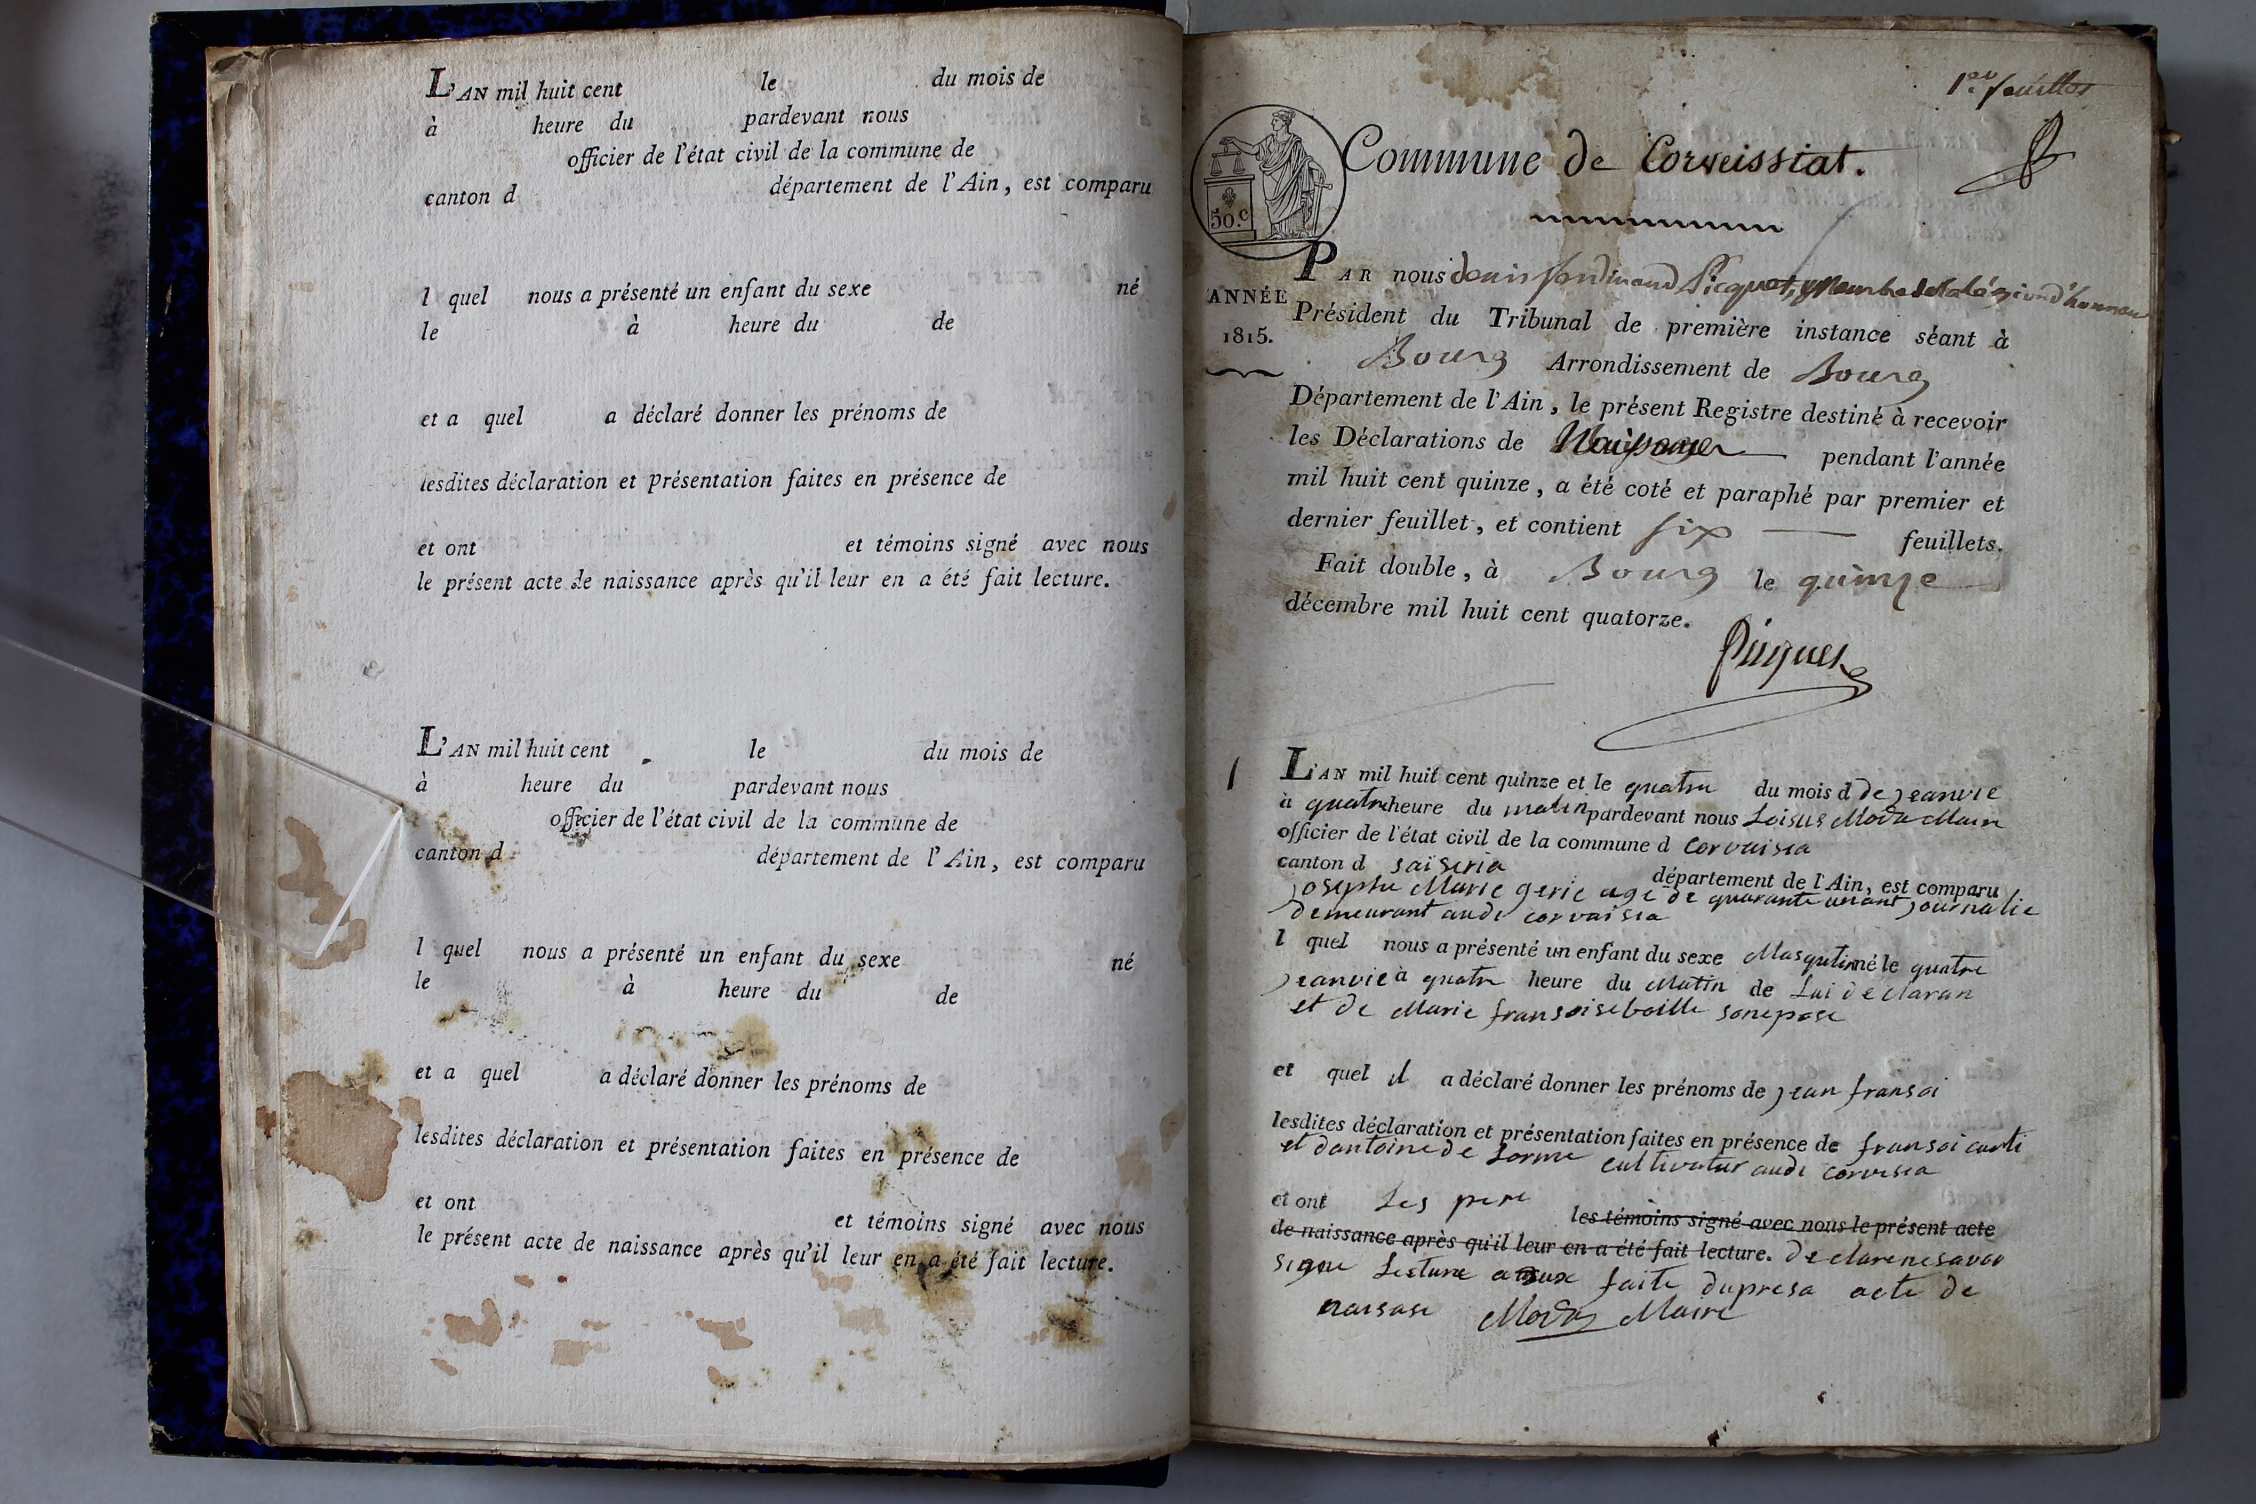 L'AN mil huit cent le du mois de
à heure du pardevant nous
officier de l'état civil de la commune de
canton d département de l'Ain, est comparu
l quel nous a présenté un enfant du sexe né
le à heure du de
et a quel a déclaré donner les prénoms de
lesdites déclaration et présentation faites en présence de
et ont et témoins signé avec nous
le présent acte de naissance après qu'il leur en a été fait lecture.
L'AN mil huit cent le du mois de
à heure du pardevant nous
officier de l'état civil de la commune de
canton d département de l'Ain, est comparu
l quel nous a présenté un enfant du sexe né
le à heure du de
et a quel a déclaré donner les prénoms de
lesdites déclaration et présentation faites en présence de
et ont et témoins signé avec nous
le présent acte de naissance après qu'il leur en a été fait lecture.
1er feuillet
Commune de Corveissiat.
50.c
ANNÉE
1815.
PAR nous denis ferdinand Picquet, Membre de la légion d'honneur
Président du Tribunal de première instance séant à
Bourg Arrondissement de Bourg
Département de l'Ain, le présent Registre destiné à recevoir
les Déclarations de Naissances pendant l'année
mil huit cent quinze, a été coté et paraphé par premier et
dernier feuillet, et contient six feuillets.
Fait double, à Bourg le quinze
décembre mil huit cent quatorze.
Picquet
1
L'AN mil huit cent quinze et le quatre du mois d de jeanvie
à quatre heure du matin pardevant nous Loisus Moda Maire
officier de l'état civil de la commune d corvaisia
canton d saiseria département de l'Ain, est comparu
josephe Marie geric age de quarante un ant journalie
demeurant audi corvaisia
l quel nous a présenté un enfant du sexe Masqulin né le quatre
jeanvie à quatre heure du Matin de Lui declaran
et de Marie fransoise boille son epose
et quel il a déclaré donner les prénoms de jean fransoi
lesdites déclaration et présentation faites en présence de fransoi carli
et dantoine de Lorme cultivatur audi corvisia
et ont Les pere les témoins signé avec nous le présent acte
de naissance après qu'il leur en a été fait lecture. declare ne savoir
signe Lecture a eux faite du presa acte de
naisase Moda Maire